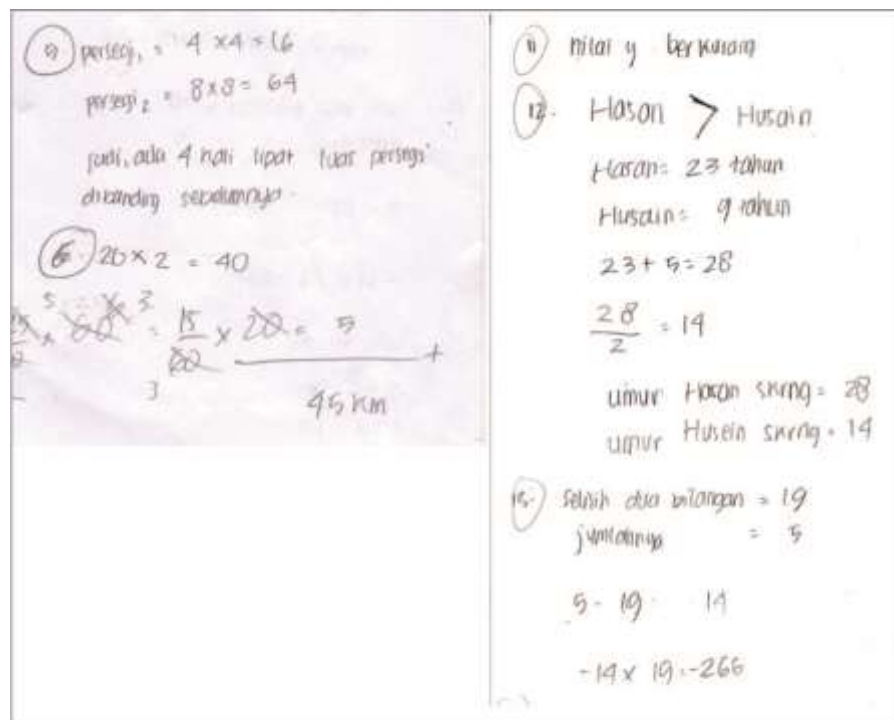 5) persegi₁ = 4 x 4 = 16
persegi₂ = 8 x 8 = 64
jadi, ada 4 kali lipat luas persegi
dibanding sebelumnya.
6. 20 x 2 = 40
15/60 x 20 = 5
3
+
45 km
11 nilai y berkurang
12. Hasan > Husain
Hasan = 23 tahun
Husain = 9 tahun
23 + 5 = 28
28/2 = 14
umur Hasan skrng = 28
umur Husein skrng = 14
15. Selisih dua bilangan = 19
jumlahnya = 5
5 - 19 - 14
-14 x 19 = -266